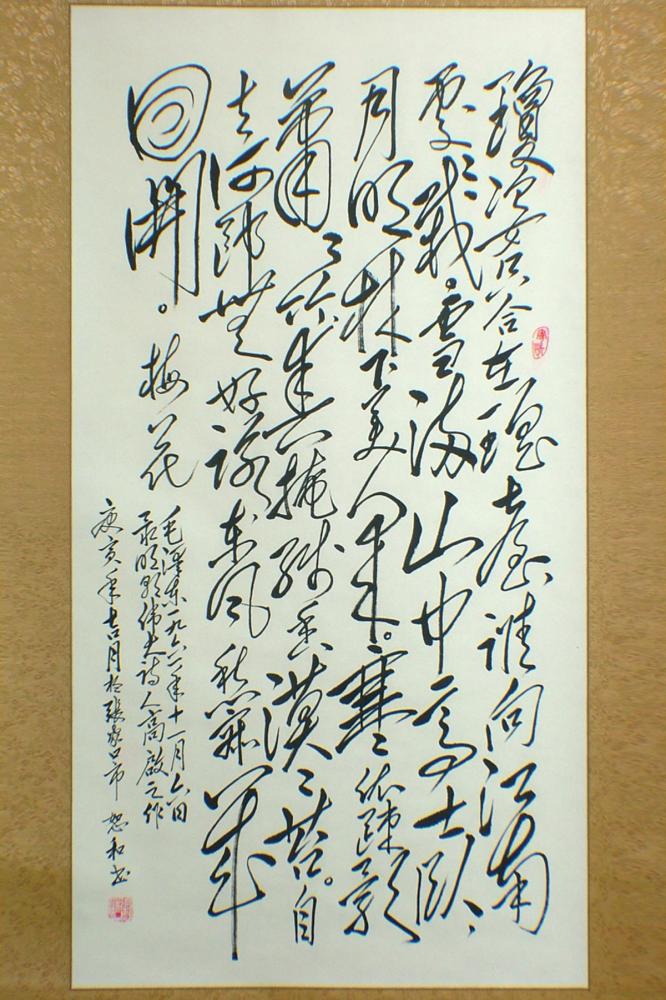 瓊姿只合在瑤台誰向江南
處〻栽。雪滿山中高士臥、
月明林下美人來。寒依疎影
蕭〻竹春掩殘香漠〻苔。自
去何郎無好詠東風愁寂幾
回開。梅花
毛澤東一九六一年十一月六日
录明朝伟大詩人高啟之作
亥年吉月於張家口市 恕和書